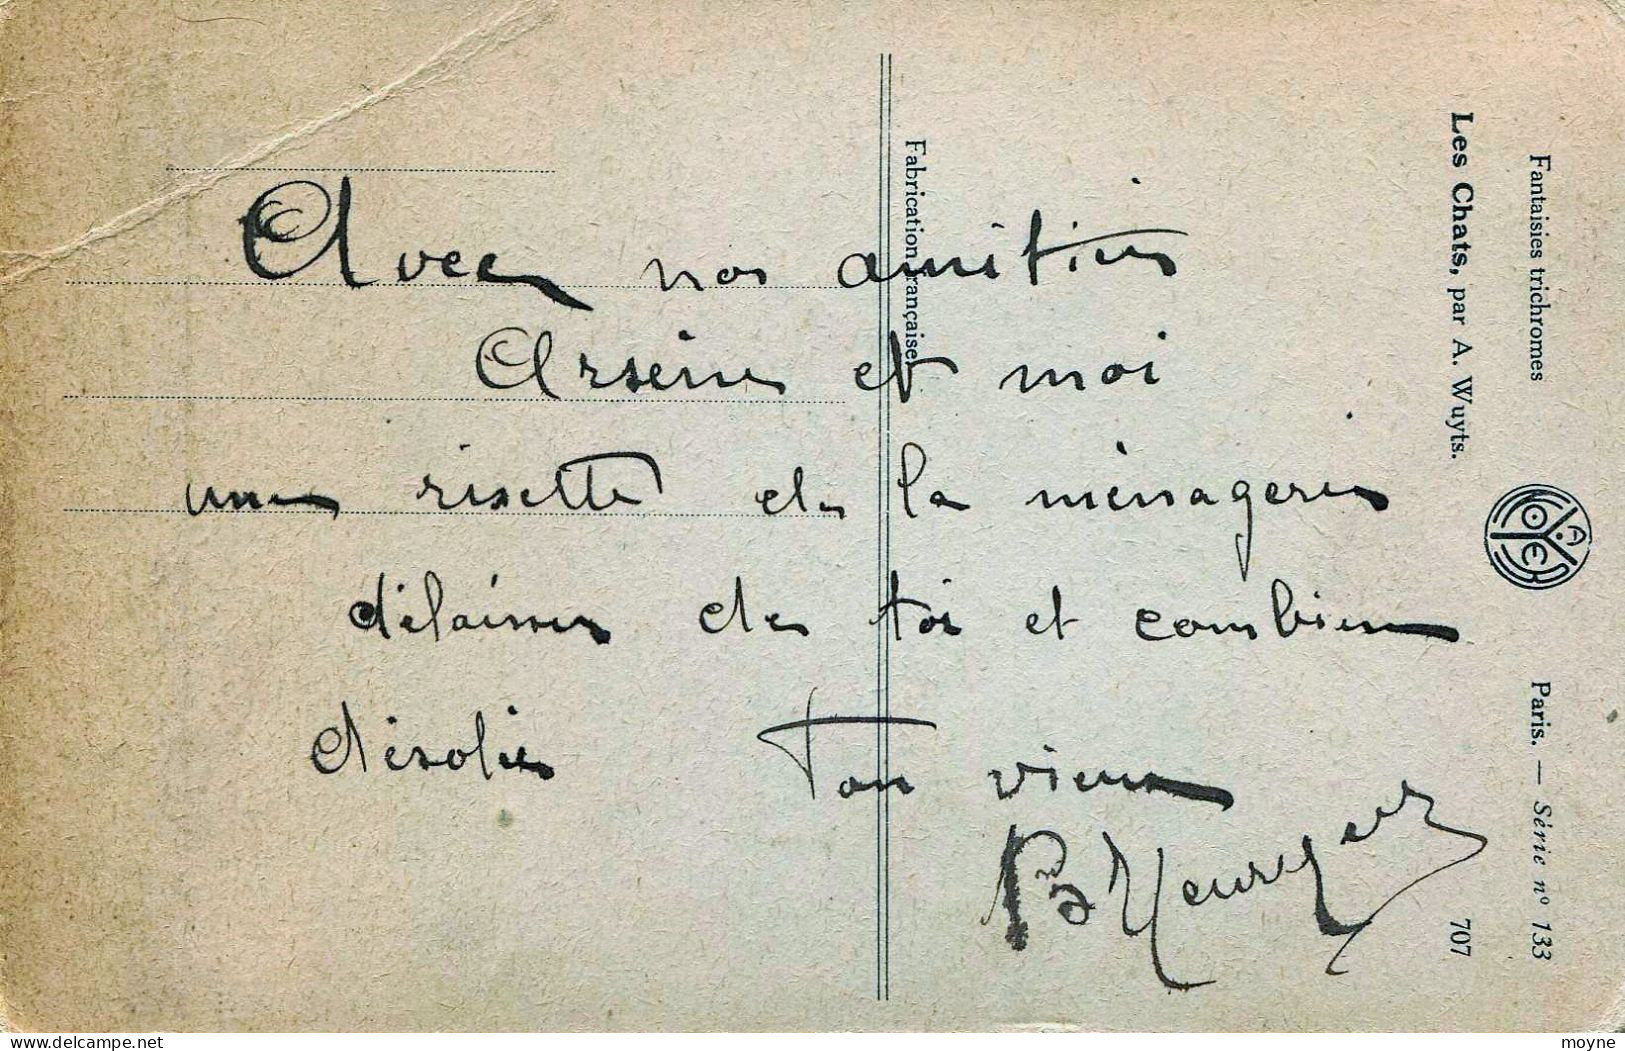 Avec nos amitiés
Arsène et moi
une risette de la ménagerie
délaissée de toi et combien
désolée Ton vieux
Fabrication Française
Les Chats, par A. Wuyts. 707
Fantaisies trichromes
A. NOYER
Paris. — Série n° 133
delcampe.net
moyne